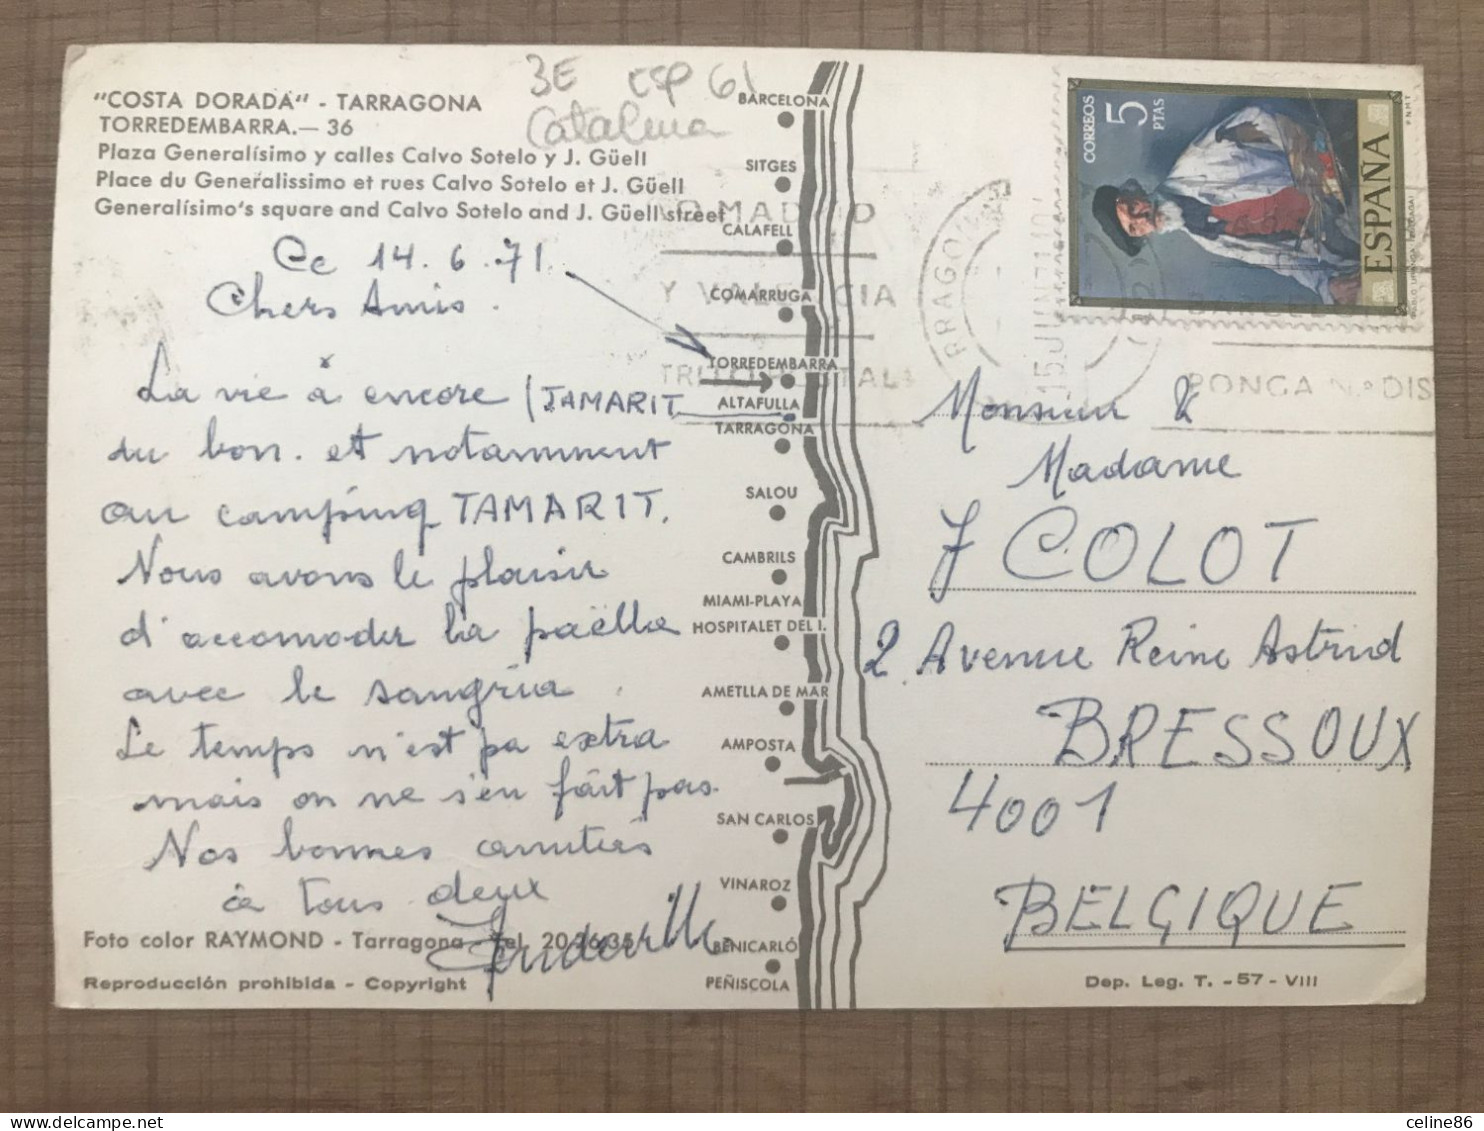 "COSTA DORADA" - TARRAGONA
TORREDEMBARRA.— 36
Plaza Generalísimo y calles Calvo Sotelo y J. Güell
Place du Generalissimo et rues Calvo Sotelo et J. Güell
Generalísimo's square and Calvo Sotelo and J. Güell street
3E ESP 61
Ce 14.6.71
Chers Amis.
La vie à encore (TAMARIT
du bon. et notamment
au camping TAMARIT.
Nous avons le plaisir
d'accomoder la paëlla
avec le sangria.
Le temps n'est pa extra
mais on ne s'en fait pas.
Nos bonnes amitiés
à tous deux
Foto color RAYMOND - Tarragona - Tel. 20
Reproducción prohibida - Copyright
BARCELONA
SITGES
CALAFELL
COMARRUGA
TORREDEMBARRA
ALTAFULLA
TARRAGONA
SALOU
CAMBRILS
MIAMI-PLAYA
HOSPITALET DEL I.
AMETLLA DE MAR
AMPOSTA
SAN CARLOS
VINAROZ
BENICARLÓ
PEÑISCOLA
CORREOS
5 PTAS
ESPAÑA
F.N.M.T
Y VALENCIA
15 JUN 71
PONGA N.º DIS
Monsieur &
Madame
J COLOT
2 Avenue Reine Astrid
BRESSOUX
4001
BELGIQUE
Dep. Leg. T. - 57 - VIII
celine86